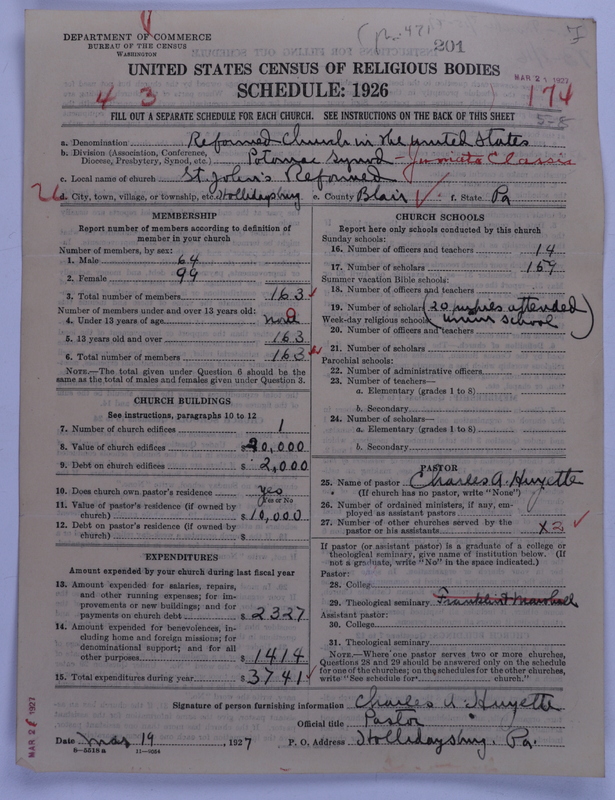 DEPARTMENT OF COMMERCE
BUREAU OF THE CENSUS
WASHINGTON
201
UNITED STATES CENSUS OF RELIGIOUS BODIES
MAR 21 1927
SCHEDULE: 1926
4 3
174
FILL OUT A SEPARATE SCHEDULE FOR EACH CHURCH. SEE INSTRUCTIONS ON THE BACK OF THIS SHEET
a. Denomination Reformed Church in the United States
b. Division (Association, Conference, Diocese, Presbytery, Synod, etc.) Potomac Synod - Juniata Classis
c. Local name of church St. John's Reformed
26
d. City, town, village, or township, etc. Hollidaysburg e. County Blair f. State Pa
MEMBERSHIP
Report number of members according to definition of member in your church
Number of members, by sex:
1. Male 64
2. Female 99
3. Total number of members 163
Number of members under and over 13 years old:
4. Under 13 years of age none
5. 13 years old and over 163
6. Total number of members 163
NOTE.—The total given under Question 6 should be the same as the total of males and females given under Question 3.
CHURCH BUILDINGS
See instructions, paragraphs 10 to 12
7. Number of church edifices 1
8. Value of church edifices $ 0,000
9. Debt on church edifices $ 2,000
10. Does church own pastor's residence yes
Yes or No
11. Value of pastor's residence (if owned by church) $ 10,000
12. Debt on pastor's residence (if owned by church) $
EXPENDITURES
Amount expended by your church during last fiscal year
13. Amount expended for salaries, repairs, and other running expenses; for improvements or new buildings; and for payments on church debt $ 2327
14. Amount expended for benevolences, including home and foreign missions; for denominational support; and for all other purposes $ 1414
15. Total expenditures during year $ 3741
CHURCH SCHOOLS
Report here only schools conducted by this church
Sunday schools:
16. Number of officers and teachers 14
17. Number of scholars 159
Summer vacation Bible schools:
18. Number of officers and teachers
19. Number of scholars (20 pupils attended union school)
Week-day religious schools:
20. Number of officers and teachers
21. Number of scholars
Parochial schools:
22. Number of administrative officers
23. Number of teachers—
a. Elementary (grades 1 to 8)
b. Secondary
24. Number of scholars—
a. Elementary (grades 1 to 8)
b. Secondary
PASTOR
25. Name of pastor Charles A. Huyette
(If church has no pastor, write "None")
26. Number of ordained ministers, if any, employed as assistant pastors
27. Number of other churches served by the pastor or his assistants x2
If pastor (or assistant pastor) is a graduate of a college or theological seminary, give name of institution below. (If not a graduate, write "No" in the space indicated.)
Pastor:
28. College
29. Theological seminary Franklin & Marshall
Assistant pastor:
30. College
31. Theological seminary
NOTE.—Where one pastor serves two or more churches, Questions 28 and 29 should be answered only on the schedule for one of the churches; on the schedules for the other churches, write "See schedule for church."
Signature of person furnishing information Charles A. Huyette
Official title Pastor
Date Mar 19, 1927 P. O. Address Hollidaysburg, Pa.
8-5518 a 11-9084